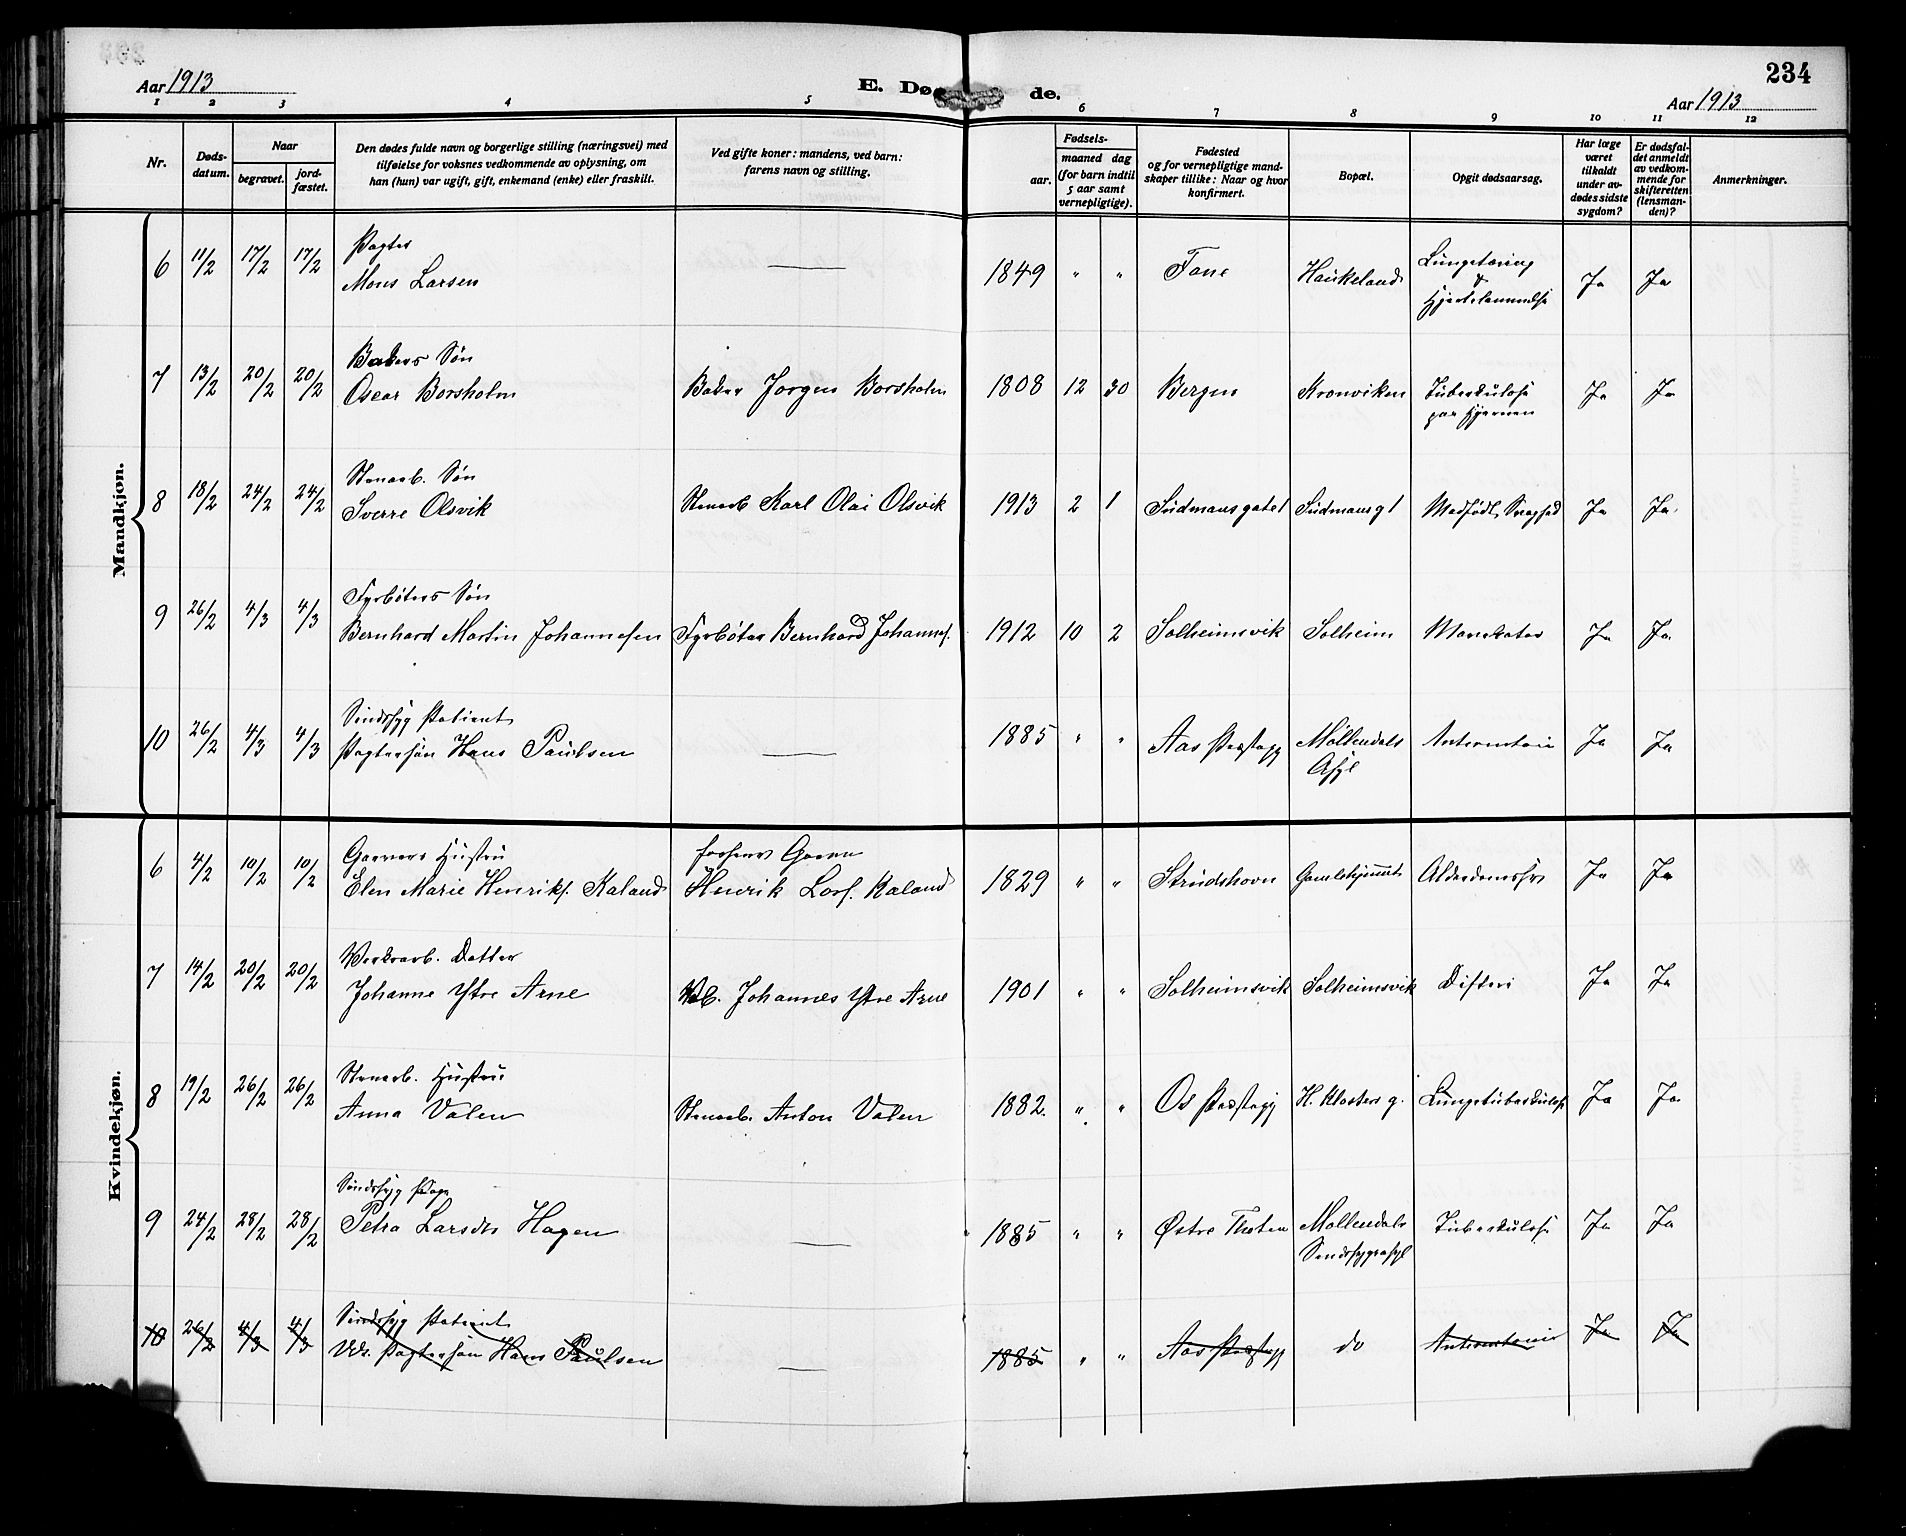 234
Aar 1913
E. Dø de.
Aar 1913
1 2 3 4 5 6 7 8 9 10 11 12
Nr.
Døds-
datum.
Naar
begravet.
jord-
fæstet.
Den dødes fulde navn og borgerlige stilling (næringsvei) med
tilføielse for voksnes vedkommende av oplysning, om
han (hun) var ugift, gift, enkemand (enke) eller fraskilt.
Ved gifte koner: mandens, ved barn:
farens navn og stilling.
Fødsels-
aar.
maaned dag
(for barn indtil
5 aar samt
vernepligtige).
Fødested
og for vernepligtige mand-
skaper tillike: Naar og hvor
konfirmert.
Bopæl.
Opgit dødsaarsag.
Har læge
været
tilkaldt
under av-
dødes sidste
sygdom?
Er dødsfal-
det anmeldt
av vedkom-
mende for
skifteretten
(lensman-
den)?
Anmerkninger.
Mandkjøn.
Pagter
6 11/2 17/2 17/2 Mons Larsen — 1849 " " Fane Haukeland Lungetæring
& Hjertelammelse Ja Ja
Bakers Søn
7 13/2 20/2 20/2 Oscar Borsholm Baker Jørgen Borsholm 1808 12 30 Bergen Kronviken Tuberkulose
paa Hjernen Ja Ja
Stenarb. Søn
8 18/2 24/2 24/2 Sverre Olsvik Stenarb Karl Olai Olsvik 1913 2 1 Sudmansgate 1 Sudmansg 1 Medfødt Svaghed Ja Ja.
Fyrbøters Søn
9 26/2 4/3 4/3 Bernhard Martin Johannesen Fyrbøter Bernhard Johannes. 1912 10 2 Solheimsvik Solheim Ja Ja.
Sindssyg Patient
10 26/2 4/3 4/3 Pagtersøn Hans Paulsen — 1885 " " Aas Præstegj Møllendals
Asyl Ja Ja
Kvindekjøn.
Garvers Hustru
6 4/2 10/2 10/2 Elen Marie Henriks. Kaland Garver
Henrik Lars. Kaland 1829 " " Strudshavn Gamlehjemmet Ja Ja
Verksarb. Datter
7 14/2 20/2 20/2 Johanne Ytre Arne Vb. Johannes Ytre Arne 1901 " " Solheimsvik Solheimsvik Difteri Ja Ja
Stenarb. Hustru
8 19/2 26/2 26/2 Anna Valen Stenarb. Anton Valen 1882. " " Os Præstegj H. Klosters g. Lungetuberkulose Ja Ja.
Sindssyg
9 24/2 28/2 28/2 Petra Larsdtr Hagen — 1885 " " Østre Thoten Møllendals
Sindssygeasyl Tuberkulose Ja Ja
Sindssyg Patient
10 26/2 4/3 4/3 Pagtersøn Hans Paulsen — 1885 " " Aas Præstegj do Ja Ja